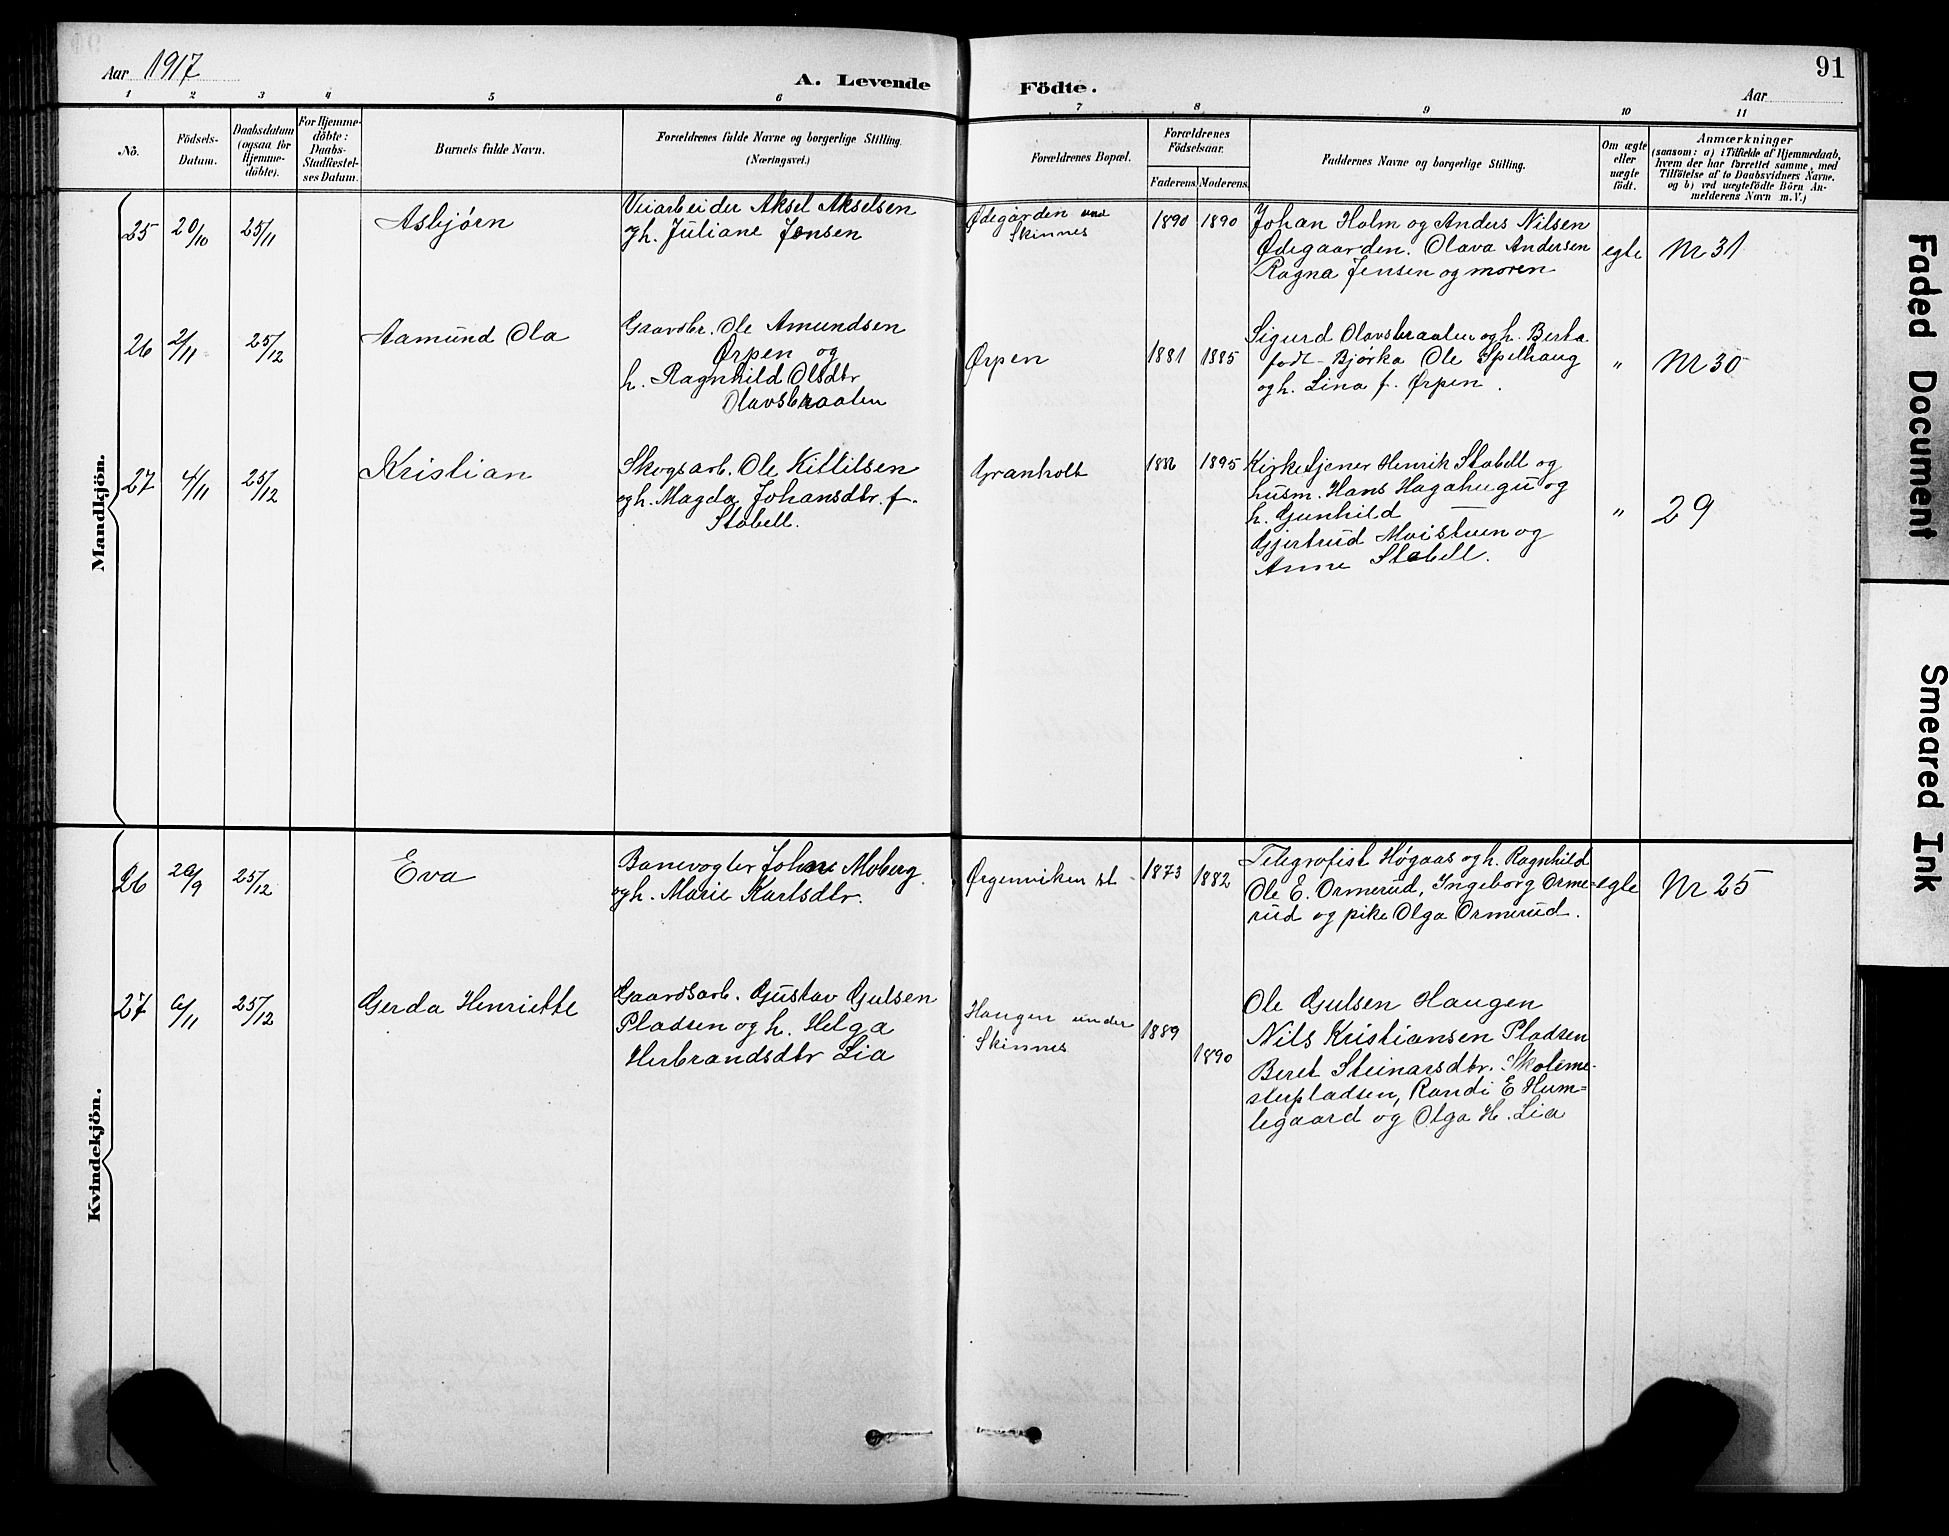 Aar 1917
A. Levende
Födte.
91
Aar
1 2 3 4 5 6 7 8 9 10 11
No.
Födsels-
Datum.
Daabsdatum
(ogsaa for
Hjemme-
döbte).
For Hjemme-
döbte:
Daabs-
Stadfæstel-
ses Datum.
Barnets fulde Navn.
Forældrenes fulde Navne og borgerlige Stilling.
(Næringsvei.)
Forældrenes Bopæl.
Forældrenes
Födselsaar.
Faderens
Moderens
Faddernes Navne og borgerlige Stilling.
Om ægte
eller
uægte
födt.
Anmærkninger
(saasom: a) i Tilfælde af Hjemmedaab,
hvem der har forrettet samme, med
Tilföielse af to Daabsvidners Navne.
og b) ved uægtefödte Börn An-
melderens Navn m.V.)
Mandkjön.
25 20/10 25/11 Asbjørn
Veiarbeider Aksel Akselsen
og h. Juliane Jensen
Ødegården und
Skinnes
1890 1890
Johan Holm og Anders Nilsen
Ødegaarden. Olava Andersen
Ragna Jensen og moren
egte Nr 31
26 2/11 25/12 Aamund Ola
Gaardbr. Ole Amundsen
Ørpen og
h. Ragnhild Olsdtr
Olavsbraaten
Ørpen
1881 1885
Sigurd Olavsbraaten og h. Berta
født Bjørka Ole Spelhaug
og h. Lina f. Ørpen.
" Nr 30
27 4/11 25/12 Kristian
Skogsarb. Ole Kittilsen
og h. Magda Johansdtr. f.
Stabell.
Granholt
1895
Kirketjener Henrik Stabell og
husm. Hans Hagahugu og
h. Gunhild
Gjertrud Moistuen og
Anne Stabell.
" 29
Kvindekjön.
26 26/9 25/12 Eva
Banevogter Johan Moberg
og h. Marie Karlsdtr.
Ørgenviken st
1873 1882
Telegrafist Høgaas og h. Ragnhild
Ole E. Ormerud, Ingeborg Orme=
rud og pike Olga Ormerud.
egte Nr 25
27 6/11 25/12 Gerda Henriette
Gaardsarb. Gustav Gulsen
Pladsen og h. Helga
Herbrandsdtr Lia
Haugen under
Skinnes
1889 1890
Ole Gulsen Haugen
Nils Kristiansen Pladsen
Beret Steinarsdtr. Skoleme-
sterpladsen, Randi E Hum=
legaard og Olga H. Lia
Faded Document
Smeared Ink